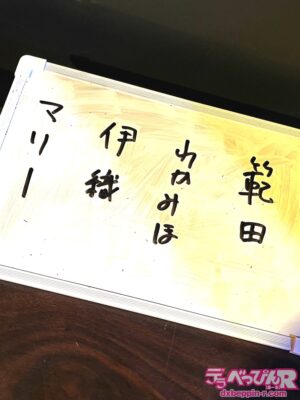 範田
わかみほ
伊織
マリー
デラべっぴんR
dxbeppin-r.com